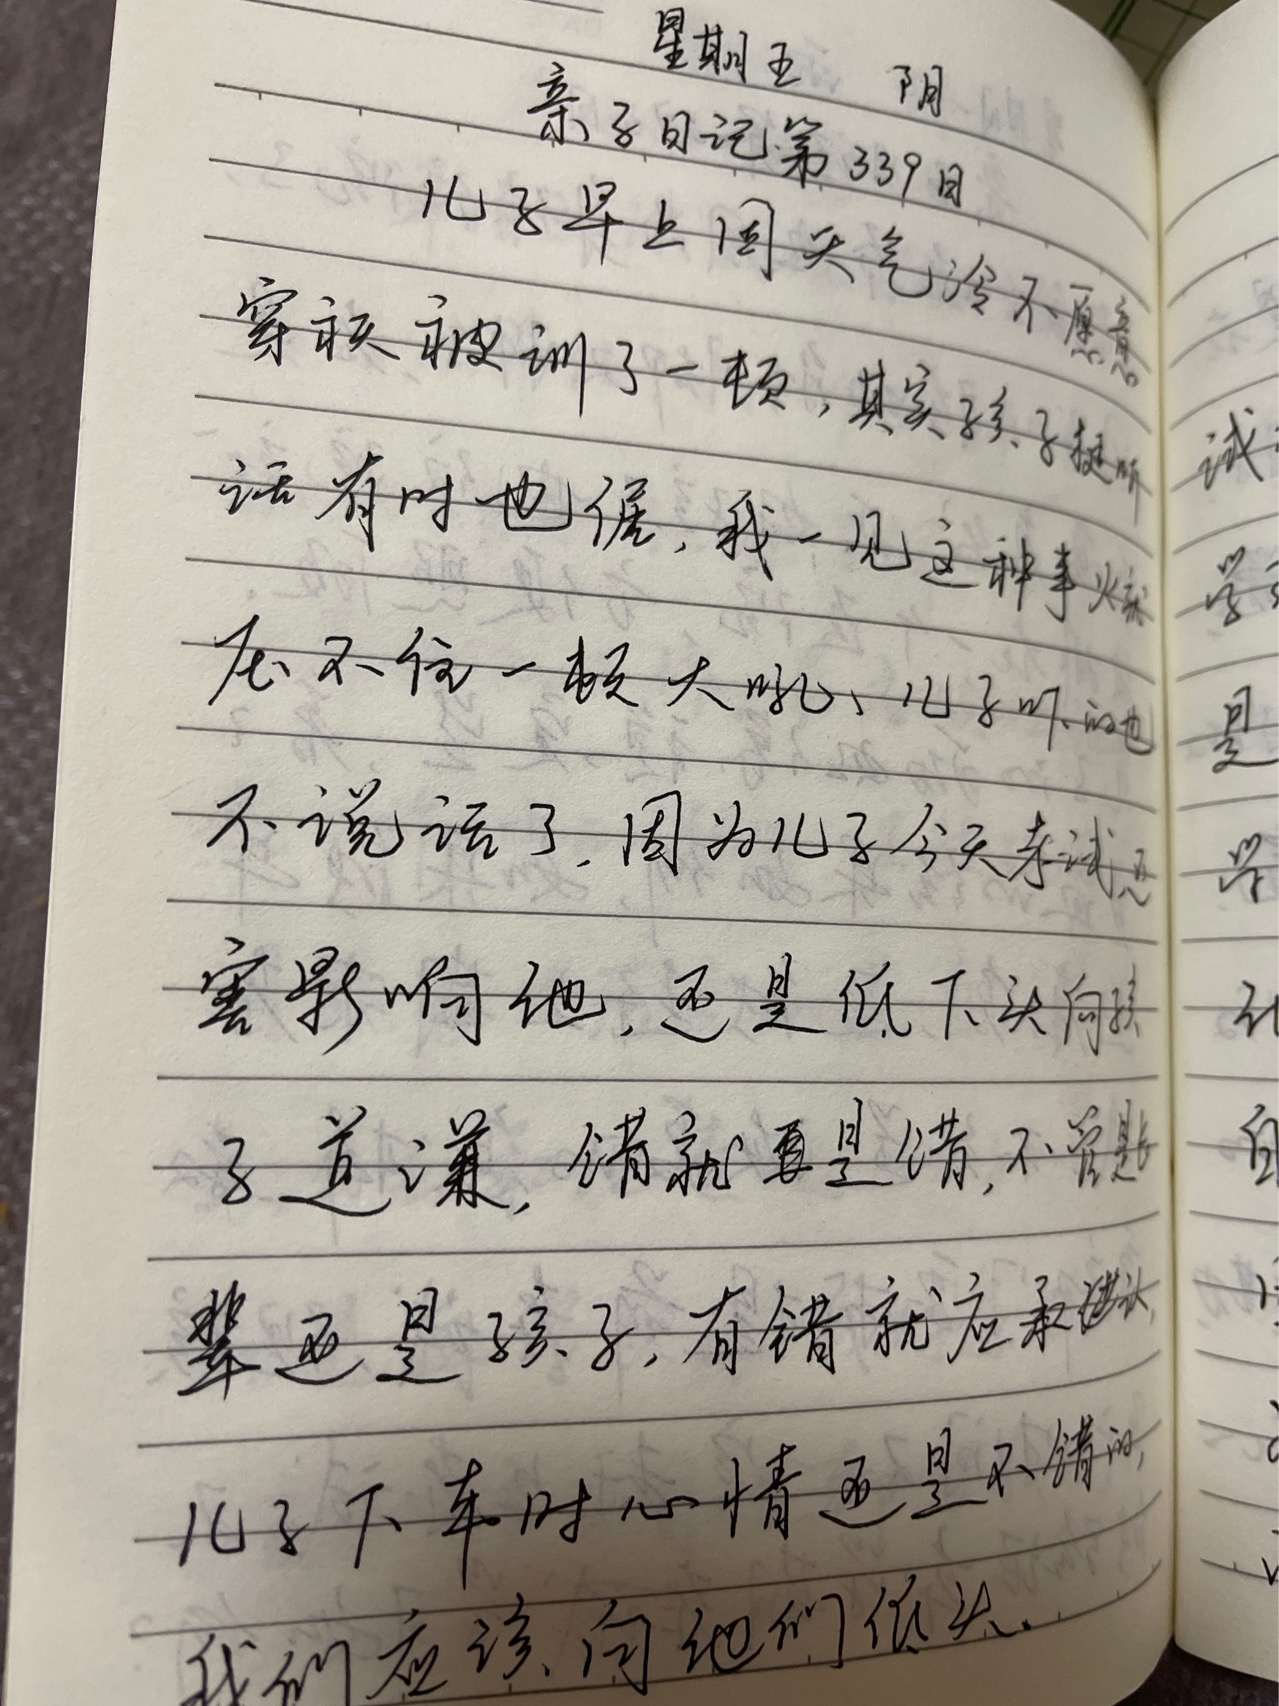 星期五 阴
亲子日记第339日
儿子早上因天气冷不愿意
穿袄被训了一顿,其实孩子挺听
话有时也倔,我一见这种事火就
压不住一顿大吼、儿子吓的也
不说话了,因为儿子今天考试恐
害影响他,还是低下头向孩
子道谦,错就要是错,不管是长
辈还是孩子,有错就应承认,
儿子下车时心情还是不错的,
我们应该向他们低头.
试
学
是
学
自